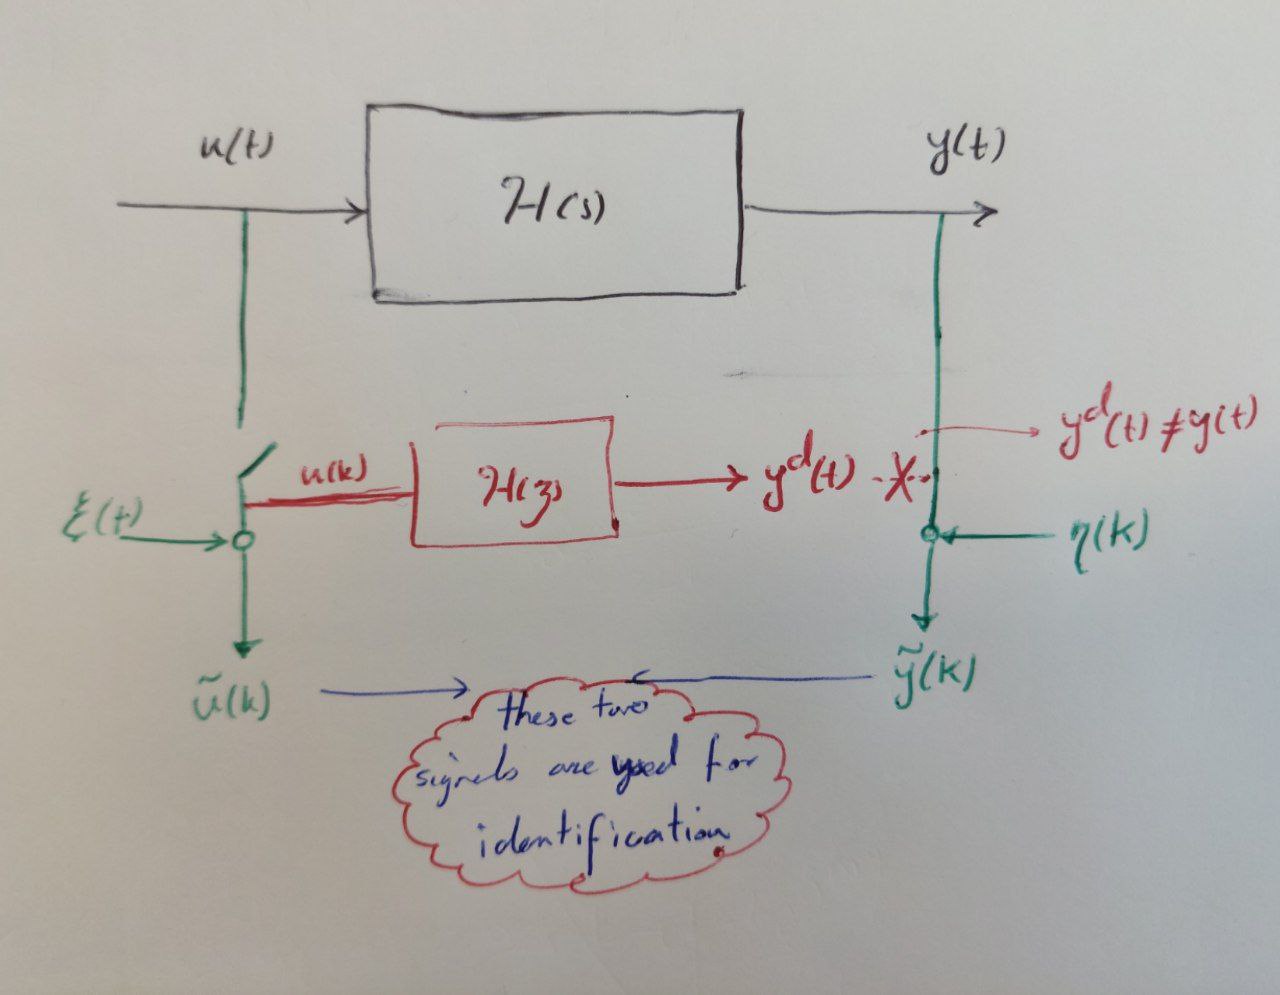 u(t)
y(t)
H(s)
y^d(t) ≠ y(t)
u(k)
H(z)
y^d(t)
ξ(t)
η(k)
ũ(k)
ỹ(k)
these two
signals are used for
identification